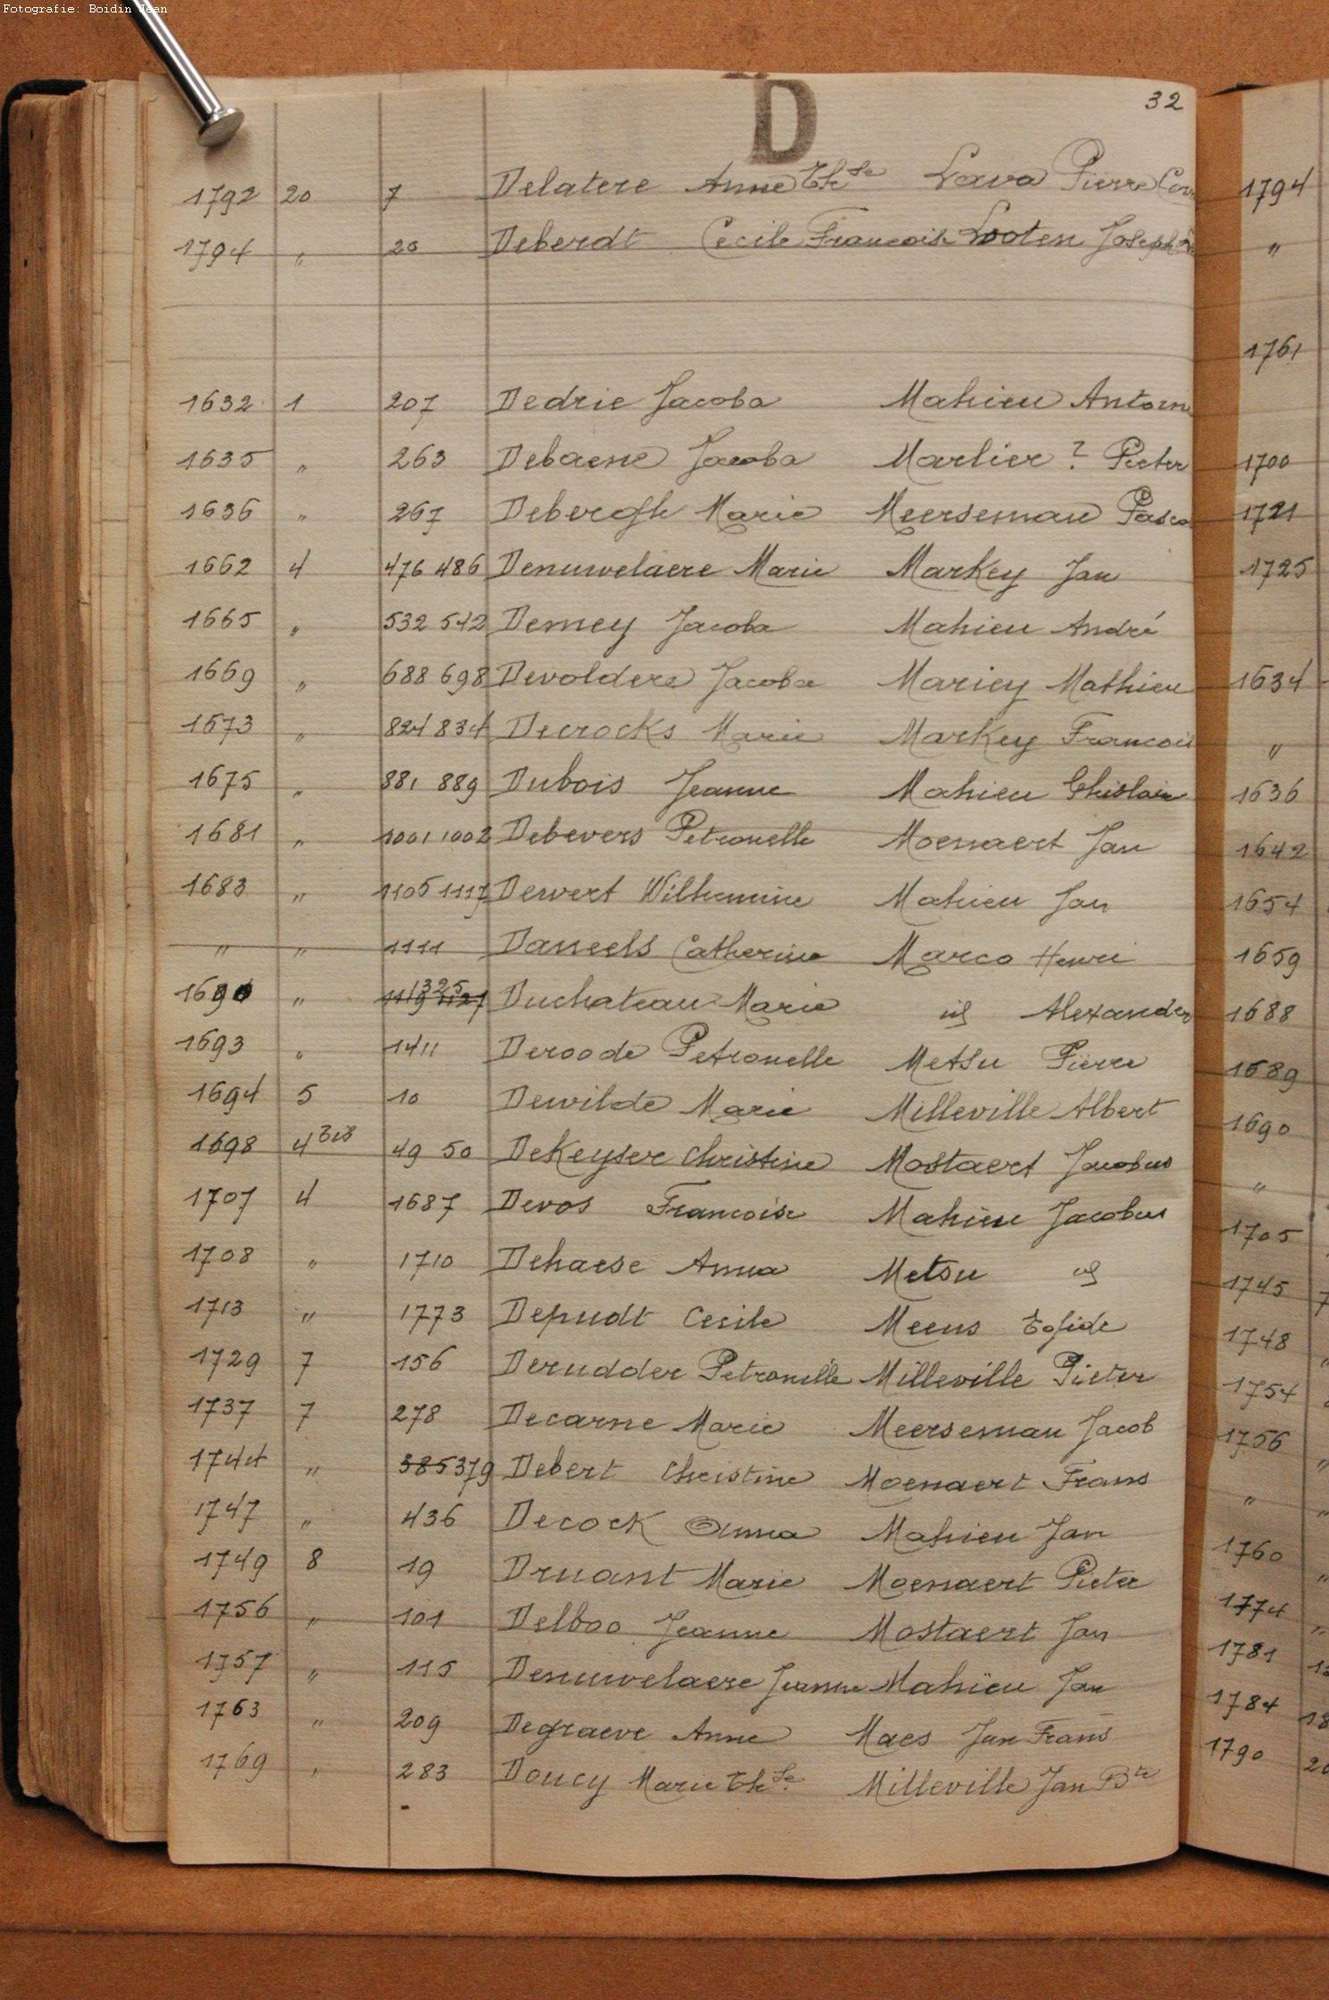 Fotografie: Boidin Jean
D
32
1792 20 7 Delatere Anne Th se Lava Pierre
1794 " 20 Deberdt Cecile Francoise Looten Joseph
1632 1 207 Dedrie Jacoba Mahieu Antoine
1635 " 263 Debaene Jacoba Marlier ? Pieter
1636 " 267 Debergh Marie Meerseman
1662 4 476 486 Denuwelaere Marie Markey Jan
1665 " 532 542 Demey Jacoba Mahieu André
1669 " 688 698 Devoldere Jacoba Mariey Mathieu
1673 " 824 834 Decrocks Marie Markey Francois
1675 " 881 889 Dubois Jeanne Mahieu Ghislain
1681 " 1001 1002 Debevers Petronelle Moenaert Jan
1683 " 1105 1117 Dewert Wilhemine Mahieu Jan
" " 1111 Daneels Catherine Marco Henri
1690 " 1325 Duchateau Marie id Alexander
1693 " 1411 Deroode Petronelle Metsu Pierre
1694 5 10 Dewilde Marie Milleville Albert
1698 4 bis 49 50 DeKeyser Christine Mostaert Jacobus
1707 4 1687 Devos Francoise Mahieu Jacobus
1708 " 1710 Dehaese Anna Metsu id
1713 " 1773 Depudt Cecile Meens Egide
1729 7 156 Derudder Petronille Milleville Pieter
1737 7 278 Decarne Marie Meerseman Jacob
1744 " 385 379 Debert Christine Moenaert Frans
1747 " 436 Decock Anna Mahieu Jan
1749 8 19 Druant Marie Moenaert Pieter
1756 " 101 Delboo Jeanne Mostaert Jan
1757 " 115 Denuwelaere Jeanne Mahieu Jan
1763 " 209 Degraeve Anne Maes Jan Frans
1769 " 283 Doucy Marie Th se Milleville Jan Bte
1794
"
1761
1700
1721
1725
1634
"
1636
1642
1654
1659
1688
1689
1690
"
1705
1745 7
1748 "
1754
1756 "
" "
1760 "
1774 "
1781
1784
1790